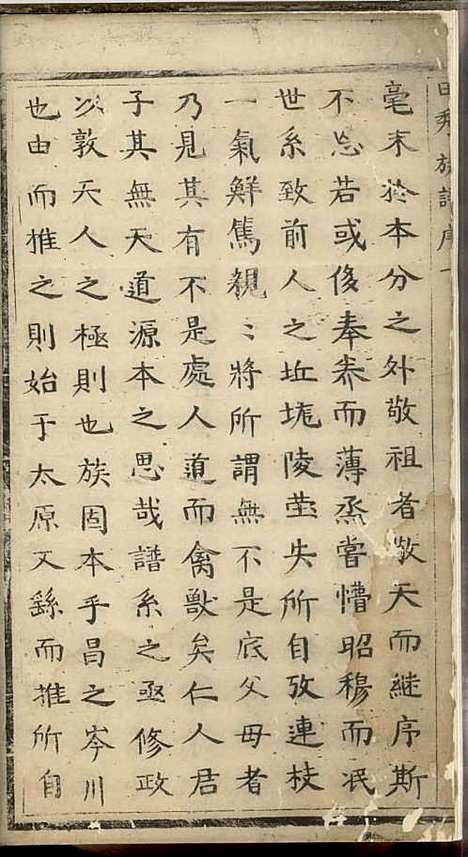 族譜序
毫末於本分之外敬祖者敬天而継序斯
不忘若或後奉养而薄烝嘗懵昭穆而泯
世系致前人之坵垅陵茔失所自攷連枝
一氣鮮篤親〻將所謂無不是底父母者
乃見其有不是處人道而禽獸矣仁人君
子其無天道源本之思哉譜系之亟修政
以敦天人之極則也族固本乎昌之岑川
也由而推之則始于太原又繇而推所自